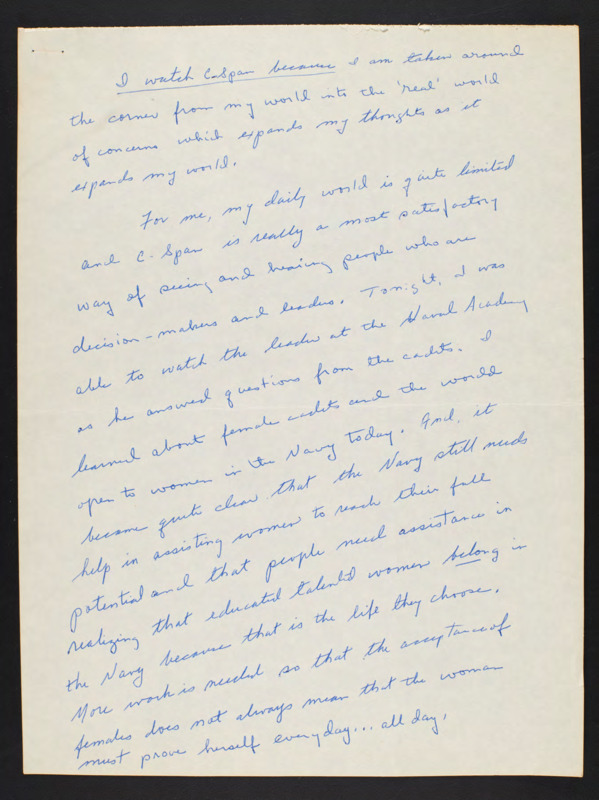 I watch C-Span because I am taken around
the corner from my world into the 'real' world
of concerns which expands my thoughts as it
expands my world.
For me, my daily world is quite limited
and C-Span is really a most satisfactory
way of seeing and hearing people who are
decision-makers and leaders. Tonight, I was
able to watch the leader at the Naval Academy
as he answered questions from the cadets. I
learned about female cadets and the world
open to women in the Navy today. And, it
became quite clear that the Navy still needs
help in assisting women to reach their full
potential and that people need assistance in
realizing that educated talented women belong in
the Navy because that is the life they choose.
More work is needed so that the acceptance of
females does not always mean that the woman
must prove herself everyday... all day.